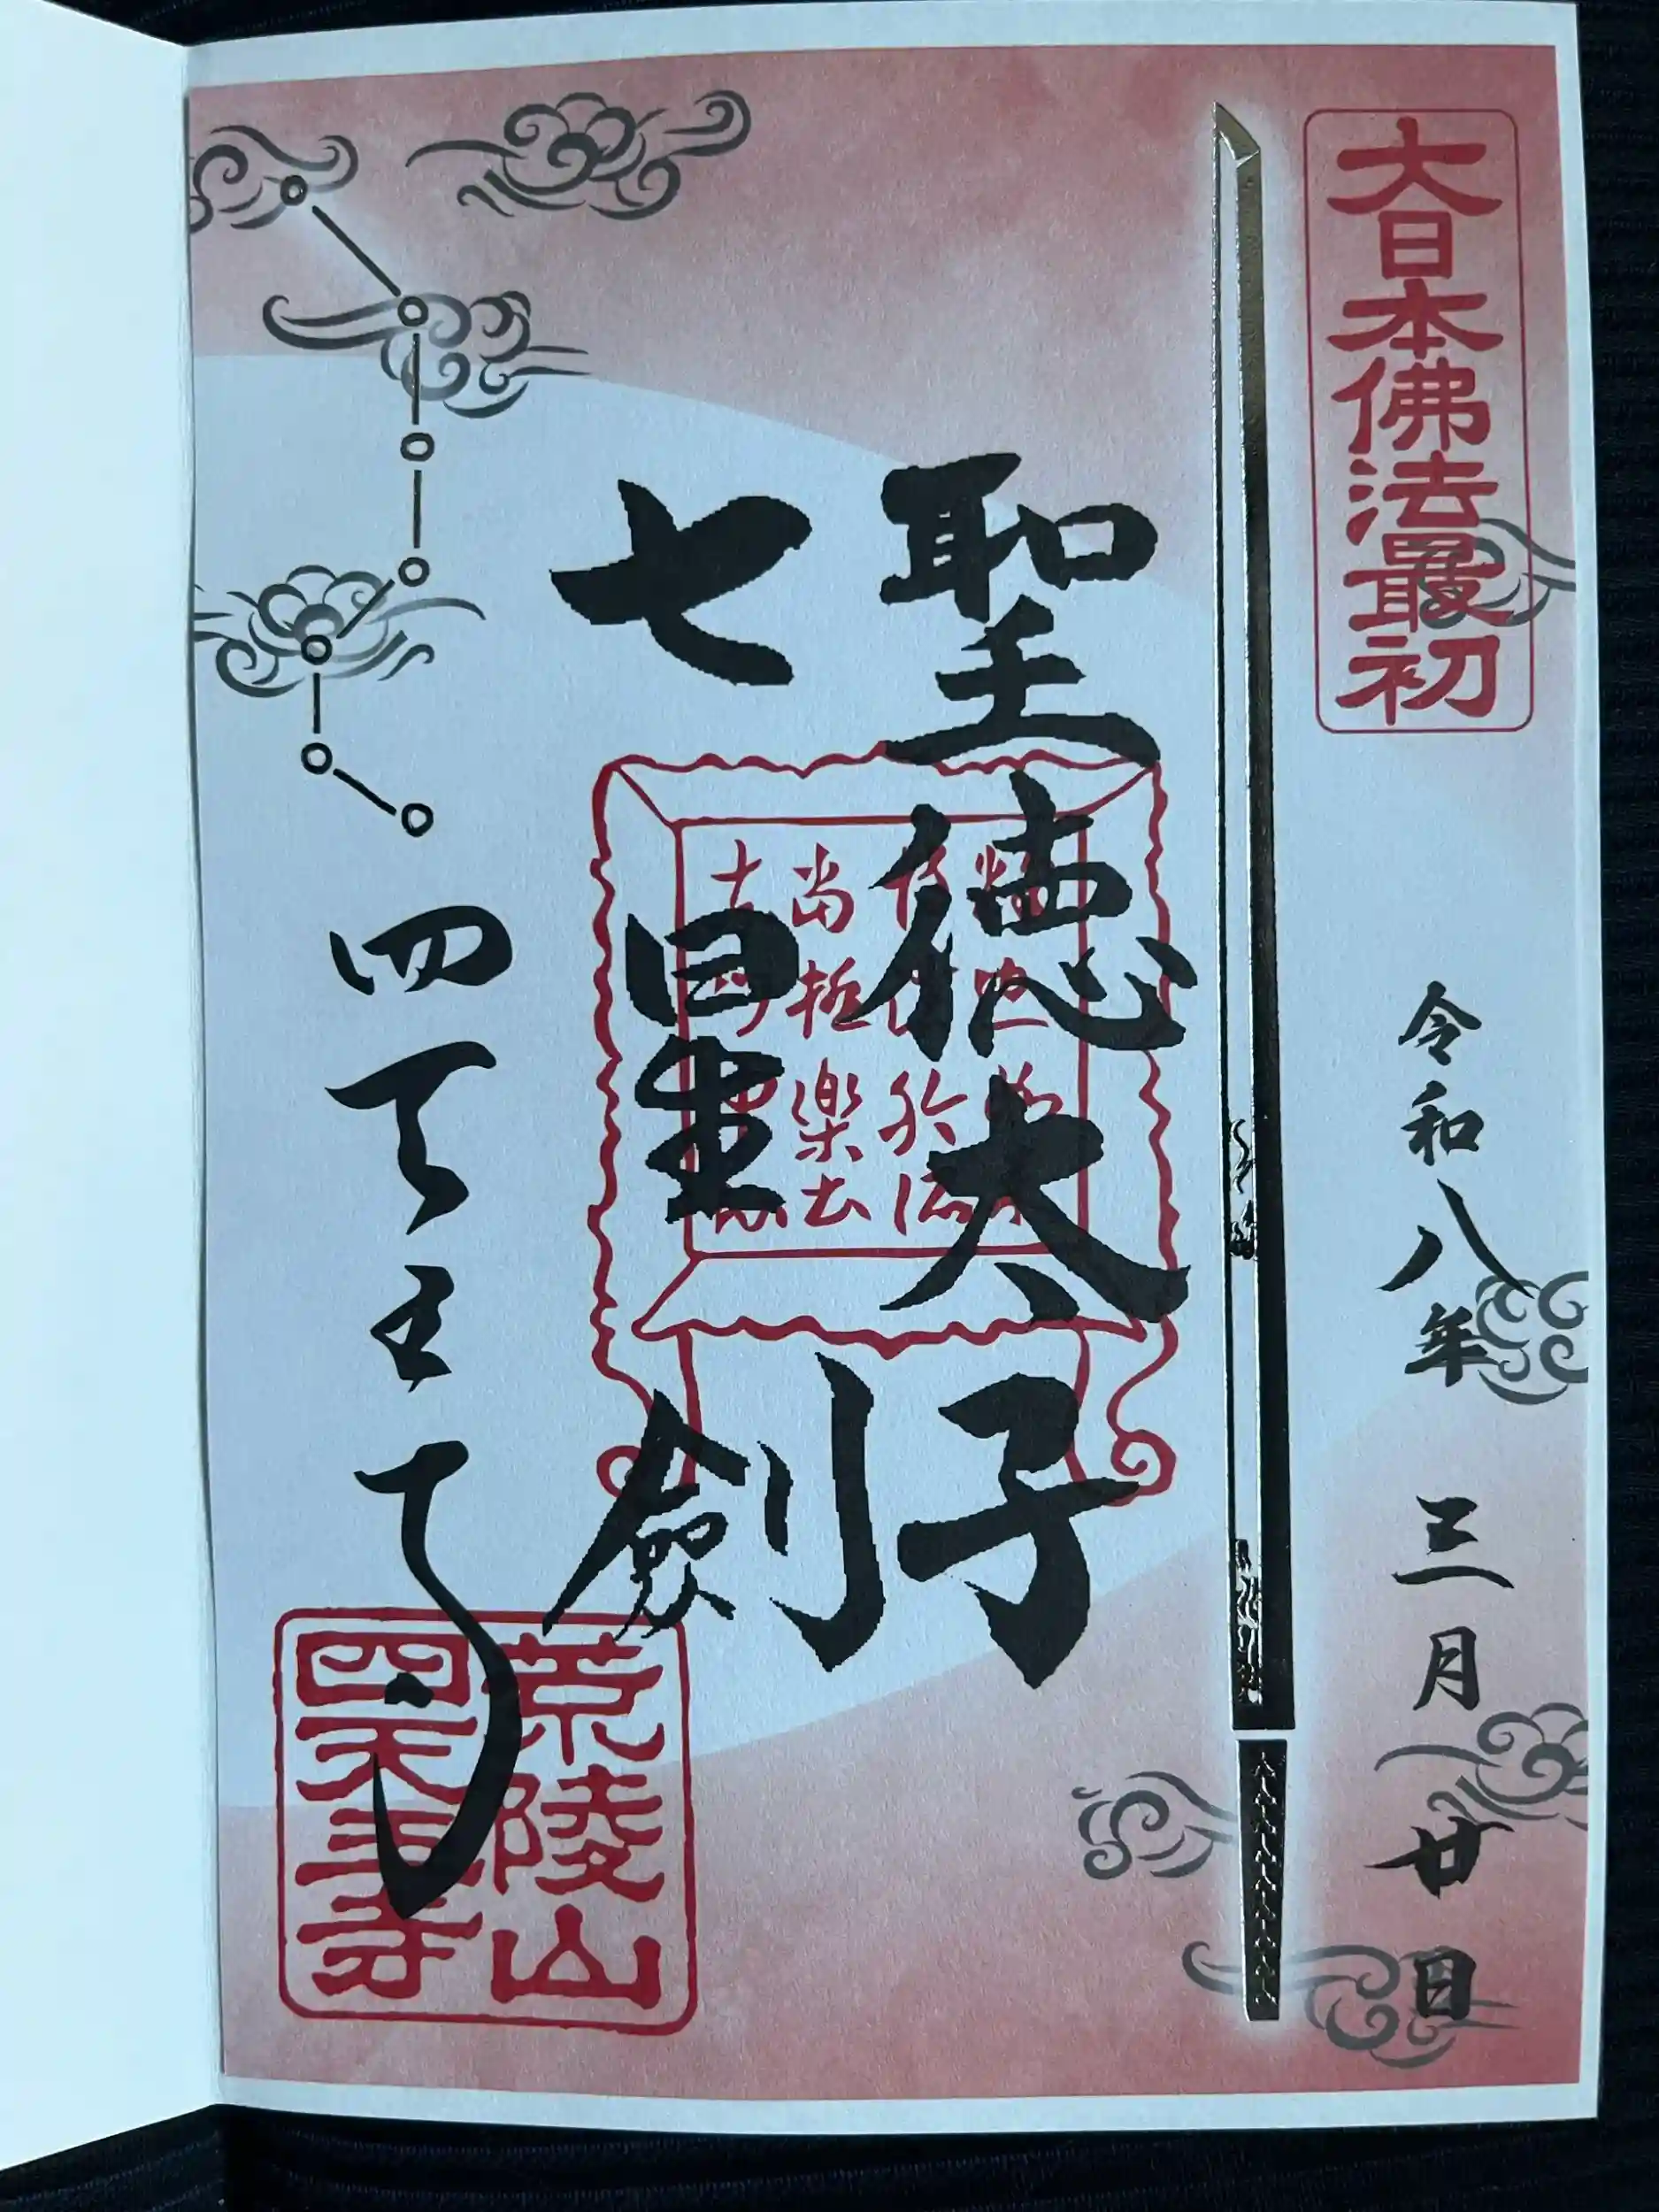 大日本佛法最初
令和八年 三月廿日
聖徳太子
七星剣
四天王寺
荒陵山
四天王寺